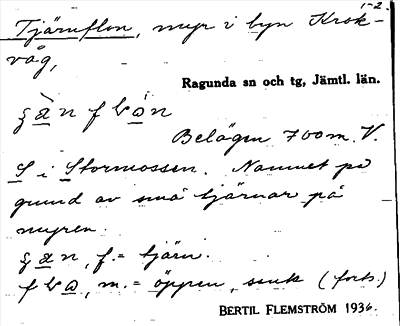 1-2.
Tjärnflon, myr i byn Krok-
våg,
Ragunda sn och tg, Jämtl. län.
Belägen 700 m. V.
S i Stormossen. Namnet på
grund av små tjärnar på
myren.
f. = tjärn.
m. = öppen, sank (forts.)
BERTIL FLEMSTRÖM 1936.